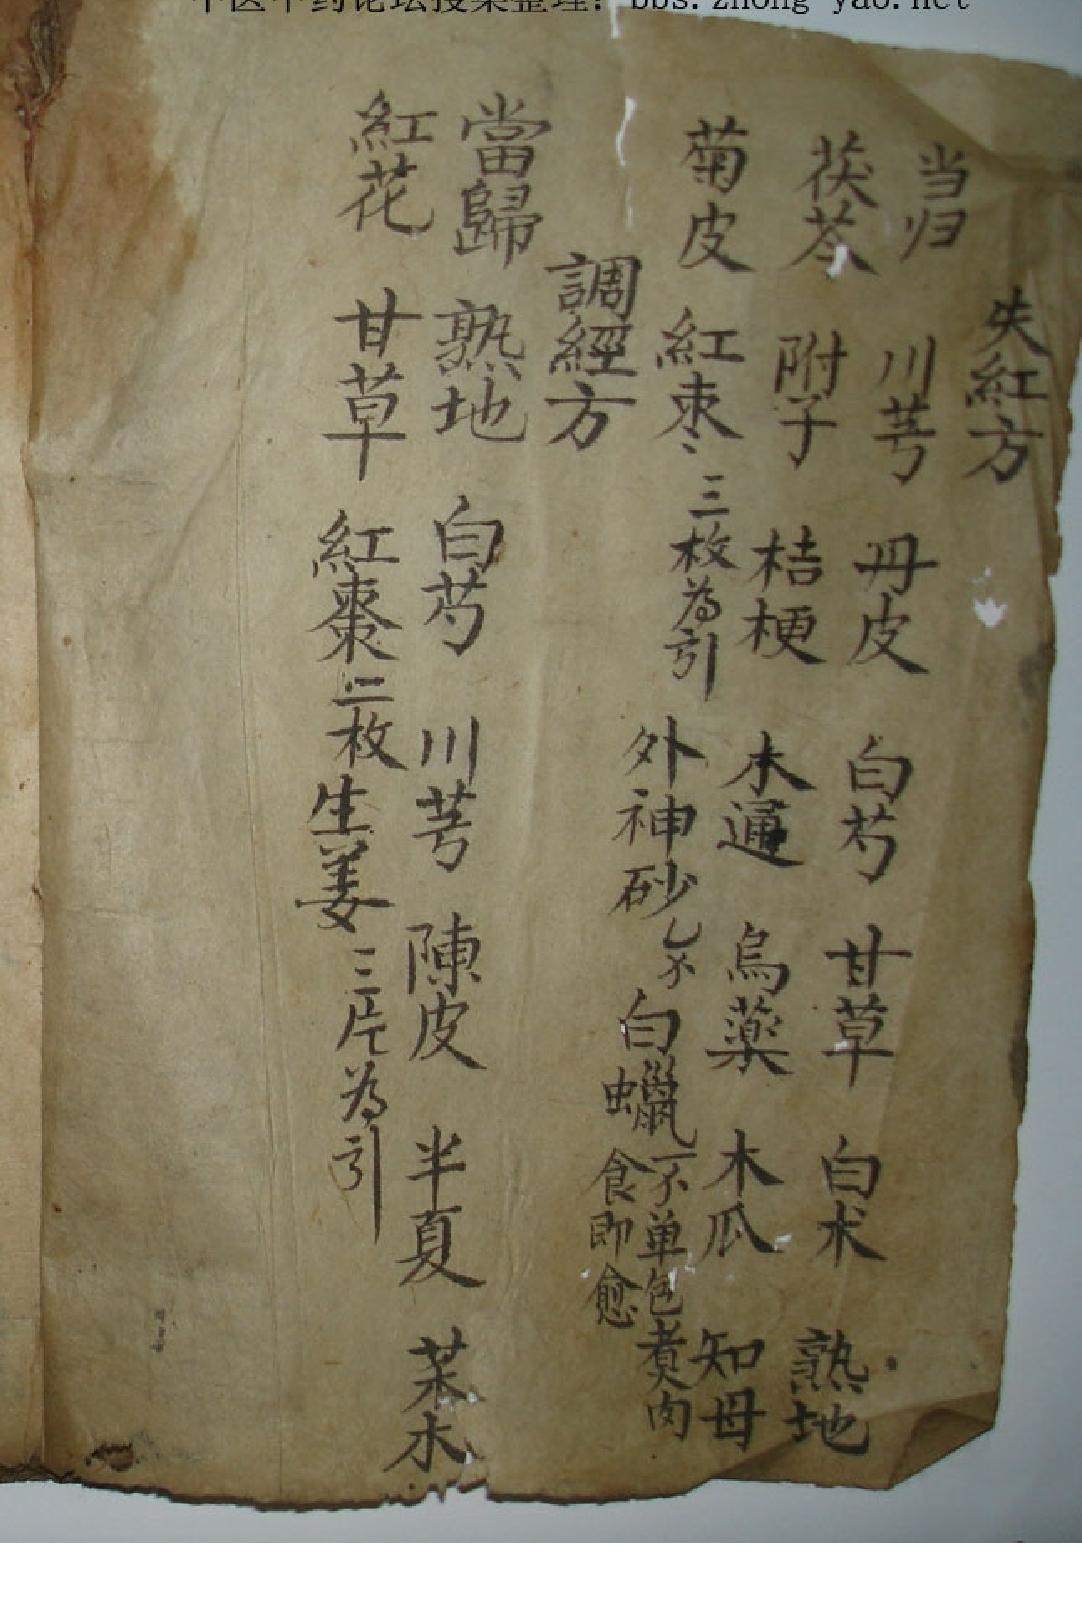 中医中药论坛搜集整理：bbs.zhong-yao.net
失紅方
当归 川芎 丹皮 白芍 甘草 白术 熟地
茯苓 附子 桔梗 木通 烏藥 木瓜 知母
菊皮 紅枣 三枚為引 外神砂 白蠟 不单包煮肉食即愈
調經方
當歸 熟地 白芍 川芎 陳皮 半夏
紅花 甘草 紅棗 二枚 生姜 三片為引